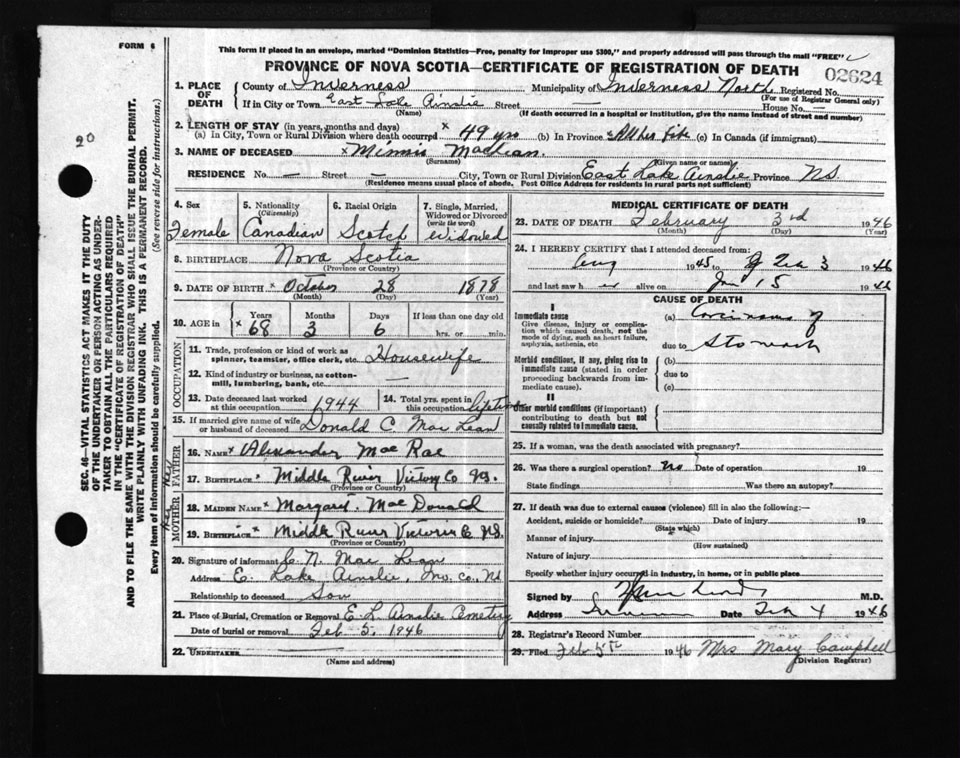 FORM 6
This form if placed in an envelope, marked "Dominion Statistics—Free, penalty for improper use $300," and properly addressed will pass through the mail "FREE"
PROVINCE OF NOVA SCOTIA—CERTIFICATE OF REGISTRATION OF DEATH
02624
20
SEC. 46—VITAL STATISTICS ACT MAKES IT THE DUTY
OF THE UNDERTAKER OR PERSON ACTING AS UNDER-
TAKER TO OBTAIN ALL THE PARTICULARS REQUIRED
IN THE "CERTIFICATE OF REGISTRATION OF DEATH"
AND TO FILE THE SAME WITH THE DIVISION REGISTRAR WHO SHALL ISSUE THE BURIAL PERMIT.
WRITE PLAINLY WITH UNFADING INK. THIS IS A PERMANENT RECORD.
Every item of information should be carefully supplied. (See reverse side for instructions.)
1. PLACE OF DEATH
County of Inverness Municipality of Inverness North Registered No.
(For use of Registrar General only)
If in City or Town East Lake Ainslie Street — House No. —
(Name) (If death occurred in a hospital or institution, give the name instead of street and number)
2. LENGTH OF STAY (in years, months and days)
(a) In City, Town or Rural Division where death occurred x 49 yrs (b) In Province x All her life (c) In Canada (if immigrant)
3. NAME OF DECEASED x Minnie MacLean
(Surname) (Given name or names)
RESIDENCE No. — Street — City, Town or Rural Division East Lake Ainslie Province N.S.
(Residence means usual place of abode. Post Office Address for residents in rural parts not sufficient)
4. Sex Female
5. Nationality (Citizenship) Canadian
6. Racial Origin Scotch
7. Single, Married, Widowed or Divorced (write the word) Widowed
8. BIRTHPLACE Nova Scotia
(Province or Country)
9. DATE OF BIRTH x October 28 1878
(Month) (Day) (Year)
10. AGE in Years x 68 Months 3 Days 6 If less than one day old hrs. or min.
OCCUPATION
11. Trade, profession or kind of work as spinner, teamster, office clerk, etc. Housewife
12. Kind of industry or business, as cotton-mill, lumbering, bank, etc. —
13. Date deceased last worked at this occupation 1944
14. Total yrs. spent in this occupation lifetime
15. If married give name of wife or husband of deceased Donald C Mac Lean
FATHER
16. NAME x Alexander Mac Rae
17. BIRTHPLACE x Middle River Co NS.
MOTHER
18. MAIDEN NAME x Mac Donald
19. BIRTHPLACE x Middle River Victoria Co N.S.
(Province or Country)
20. Signature of informant C. N. Mac Lean
Address E. Lake Ainslie, Inv. Co., NS
Relationship to deceased Son
21. Place of Burial, Cremation or Removal E. L. Ainslie Cemetery
Date of burial or removal Feb 5, 1946
22. UNDERTAKER
(Name and address)
MEDICAL CERTIFICATE OF DEATH
23. DATE OF DEATH February 3rd 1946
(Month) (Day) (Year)
24. I HEREBY CERTIFY that I attended deceased from:
Aug 1945 to Feb 3 1946
and last saw her alive on Jan 15 1946
CAUSE OF DEATH
I
Immediate cause
Give disease, injury or complication which caused death, not the mode of dying, such as heart failure, asphyxia, asthenia, etc
(a) Carcinoma of
due to Stomach
Morbid conditions, if any, giving rise to immediate cause (stated in order proceeding backwards from immediate cause).
(b)
due to
(c)
II
Other morbid conditions (if important) contributing to death but not causally related to immediate cause.
25. If a woman, was the death associated with pregnancy?
26. Was there a surgical operation? No Date of operation 19
State findings Was there an autopsy?
27. If death was due to external causes (violence) fill in also the following:—
Accident, suicide or homicide? Date of injury 19
(State which)
Manner of injury
(How sustained)
Nature of injury
Specify whether injury occurred in industry, in home, or in public place
Signed by M.D.
Address Date Feb 4 1946
28. Registrar's Record Number
29. Filed Feb 5th 1946 Mrs Mary Campbell
(Division Registrar)